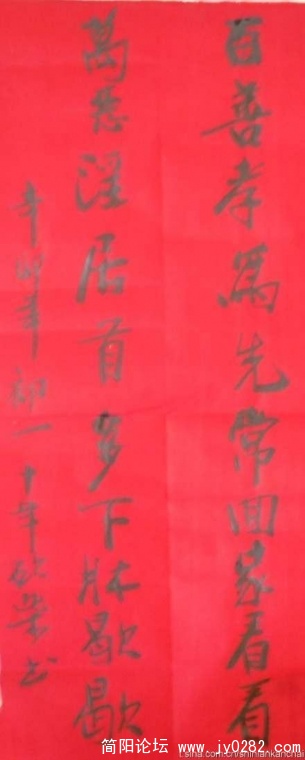 百善孝為先常回家看看
萬惡淫居首多下牀歇歇
辛卯年初一
t.sina.com.cn/shimiankanchai
简阳论坛 www.jy0282.com